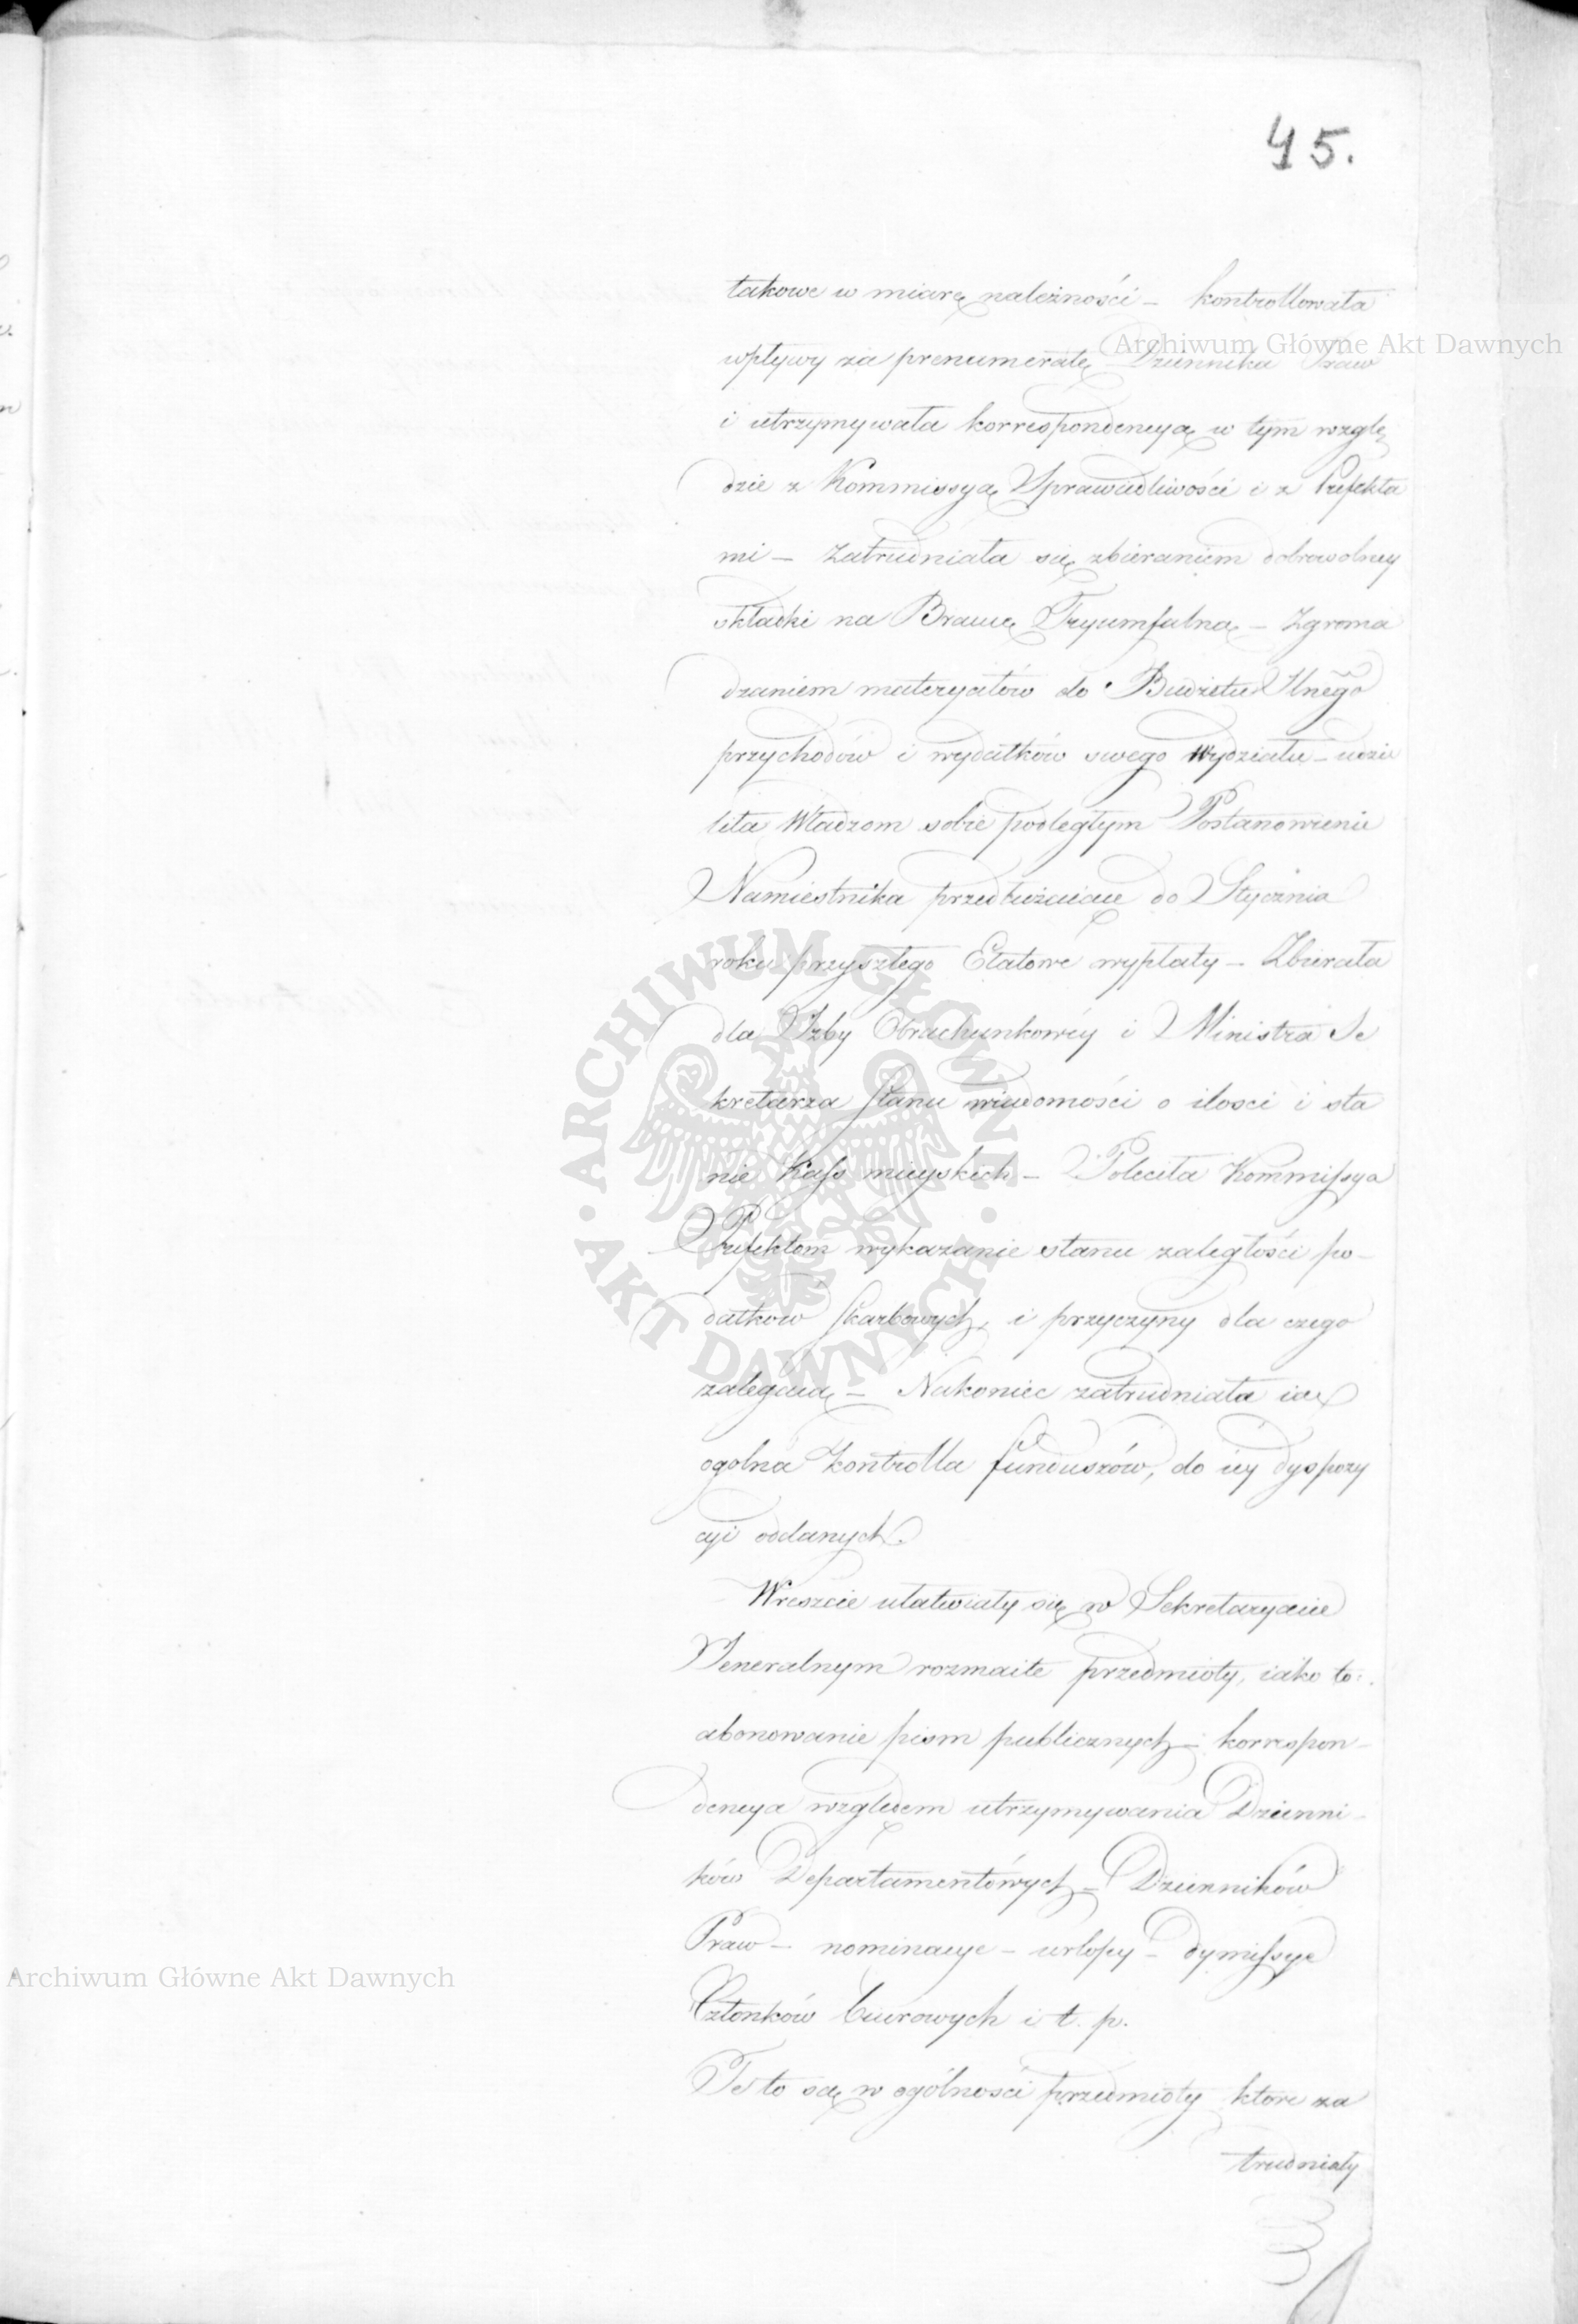 45.
takowe w miarę należności – kontrollowała
Archiwum Główne Akt Dawnych
wpływy za prenumeratę Dziennika Praw
i utrzymywała korrespondencyą w tym wzglę
dzie z Kommissyą Sprawiedliwości i z Prefekta
mi – Zatrudniała się zbieraniem dobrowolney
składki na Bramę Tryumfalną – Zgroma
dzaniem materyałów do Budżetu
przychodów i wydatków swego Wydziału – udzie
liła Władzom sobie podległym Postanowienie
Namiestnika przedłużaiące do Stycznia
roku przyszłego Etatowe wypłaty – Zbierała
dla Izby Obrachunkowéy i Ministra Se
kretarza Stanu wiadomości o ilosci i sta
nie Kass mieyskich – Poleciła Kommissya
Prefektom wykazanie stanu zaległości po-
datkow skarbowych, i przyczyny dla czego
zalegaią – Nakoniec zatrudniała ią
ogolna kontrolla funduszów, do iey dyspozy
cyi oddanych.
Wreszcie ułatwiały się w Sekretaryacie
Jeneralnym rozmaite przedmioty, iako to:
abonowanie pism publicznych – korrespon-
dencya względem utrzymywania Dzienni-
ków Departamentówych – Dzienników
Praw – nominacye – urlopy – dymissye
Archiwum Główne Akt Dawnych
Członków biurowych i t. p.
Te to są w ogólności przedmioty które za
trudniały
ARCHIWUM GŁÓWNE • AKT DAWNYCH •